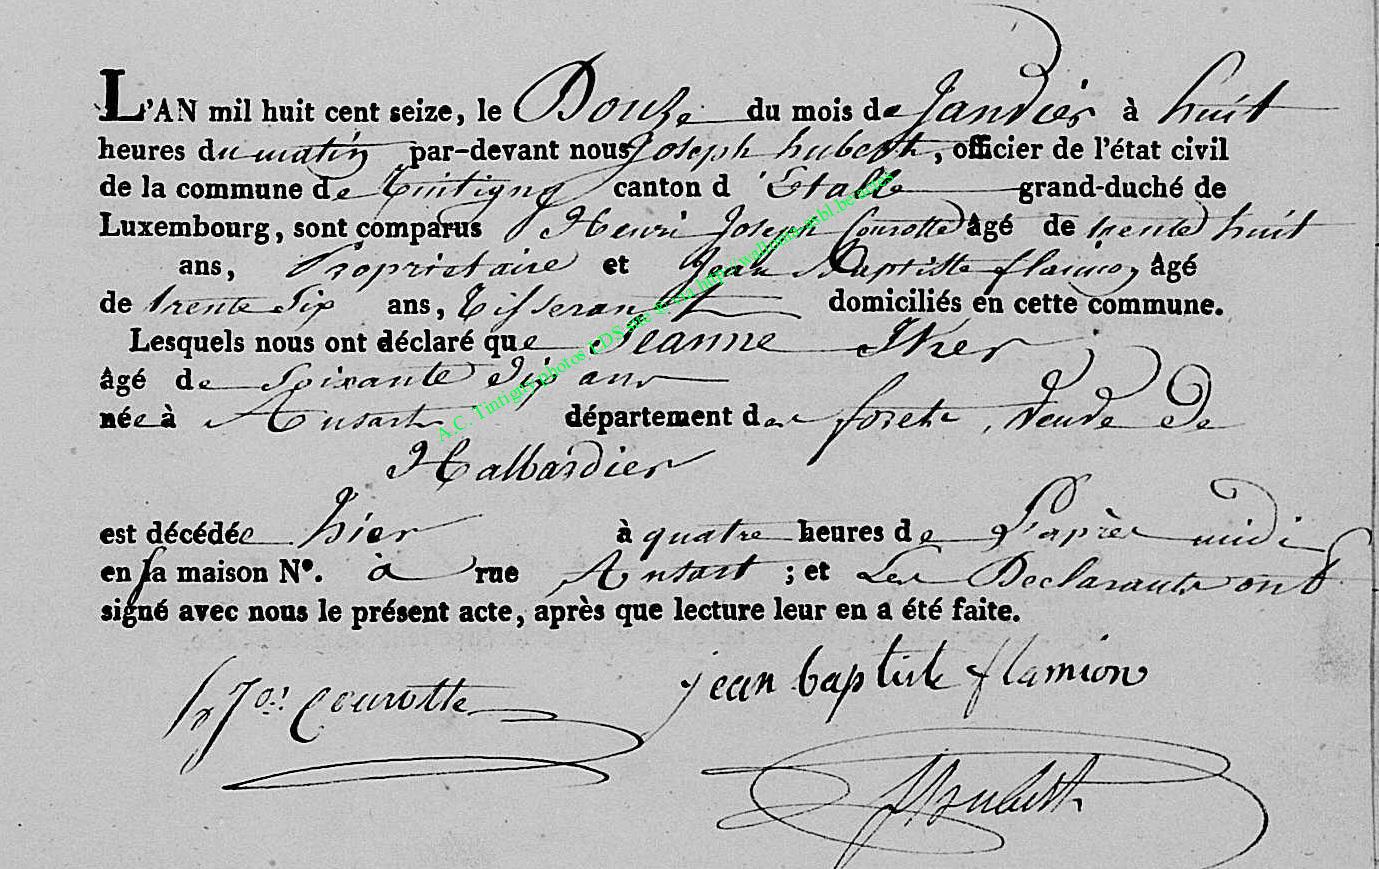 L'AN mil huit cent seize, le Douze du mois de Janvier à huit
heures du matin par-devant nous Joseph hubert, officier de l'état civil
de la commune de Tintigny canton d'Etalle grand-duché de
Luxembourg, sont comparus Henri Joseph Courotte âgé de trente huit
ans, Propriétaire et Jean Baptiste flamion âgé
de trente Six ans, Tisserand domiciliés en cette commune.
Lesquels nous ont déclaré que Jeanne
âgé de Soixante Dix ans
née à Ansart département des forêts, Veuve de
Halbardier
est décédée hier à quatre heures de L'après midi
en sa maison Nº. à rue Ansart ; et Les Declarants ont
signé avec nous le présent acte, après que lecture leur en a été faite.
h Jos. Courotte
jean baptiste flamion
JHubert
A.C. Tintigny photos LDS site